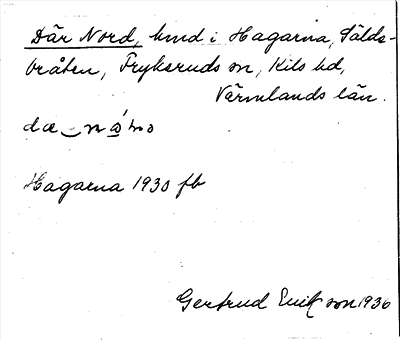 Där Nord, hmd i Hagarna, Sälds-
bråten, Fryksruds sn, Kils hd,
Värmlands län.
Hagarna 1930 fb
Gertrud Erikson 1936